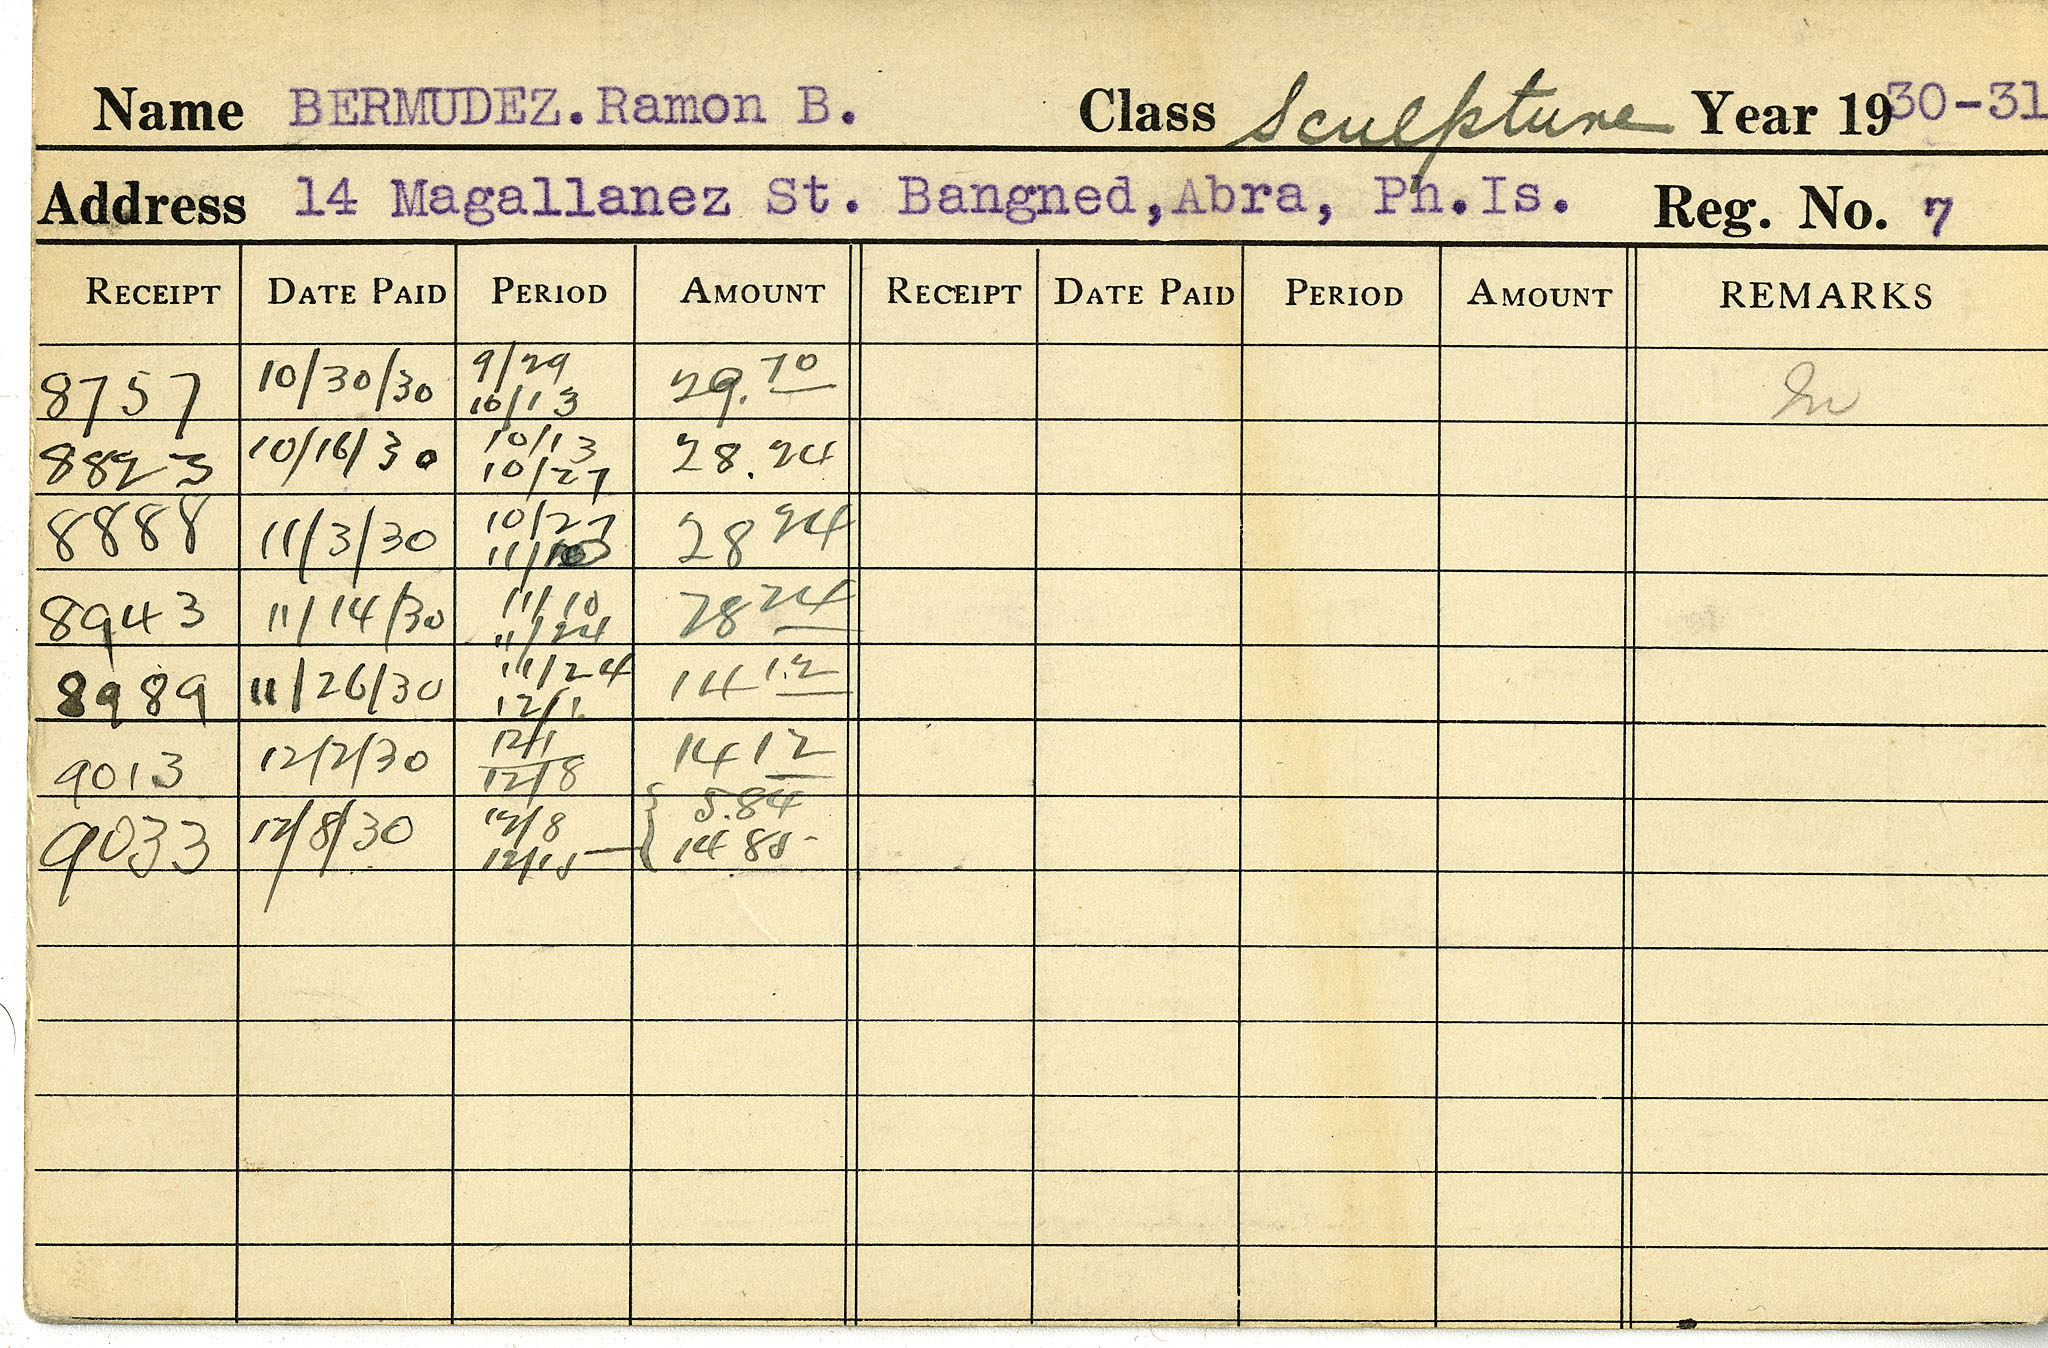 Name BERMUDEZ.Ramon B. Class Sculpture Year 1930-31
Address 14 Magallanez St. Bangned,Abra, Ph.Is. Reg. No. 7
RECEIPT DATE PAID PERIOD AMOUNT RECEIPT DATE PAID PERIOD AMOUNT REMARKS
8757 10/30/30 9/29 10/13 29.70
8823 10/16/30 10/13 10/27 28.24
8888 11/3/30 10/27 11/10 28 24
8943 11/14/30 11/10 11/24 28 24
8989 11/26/30 11/24 12/1 14 12
9013 12/2/30 12/1 12/8 14 12
9033 12/8/30 12/8 12/15 5.84 14 85